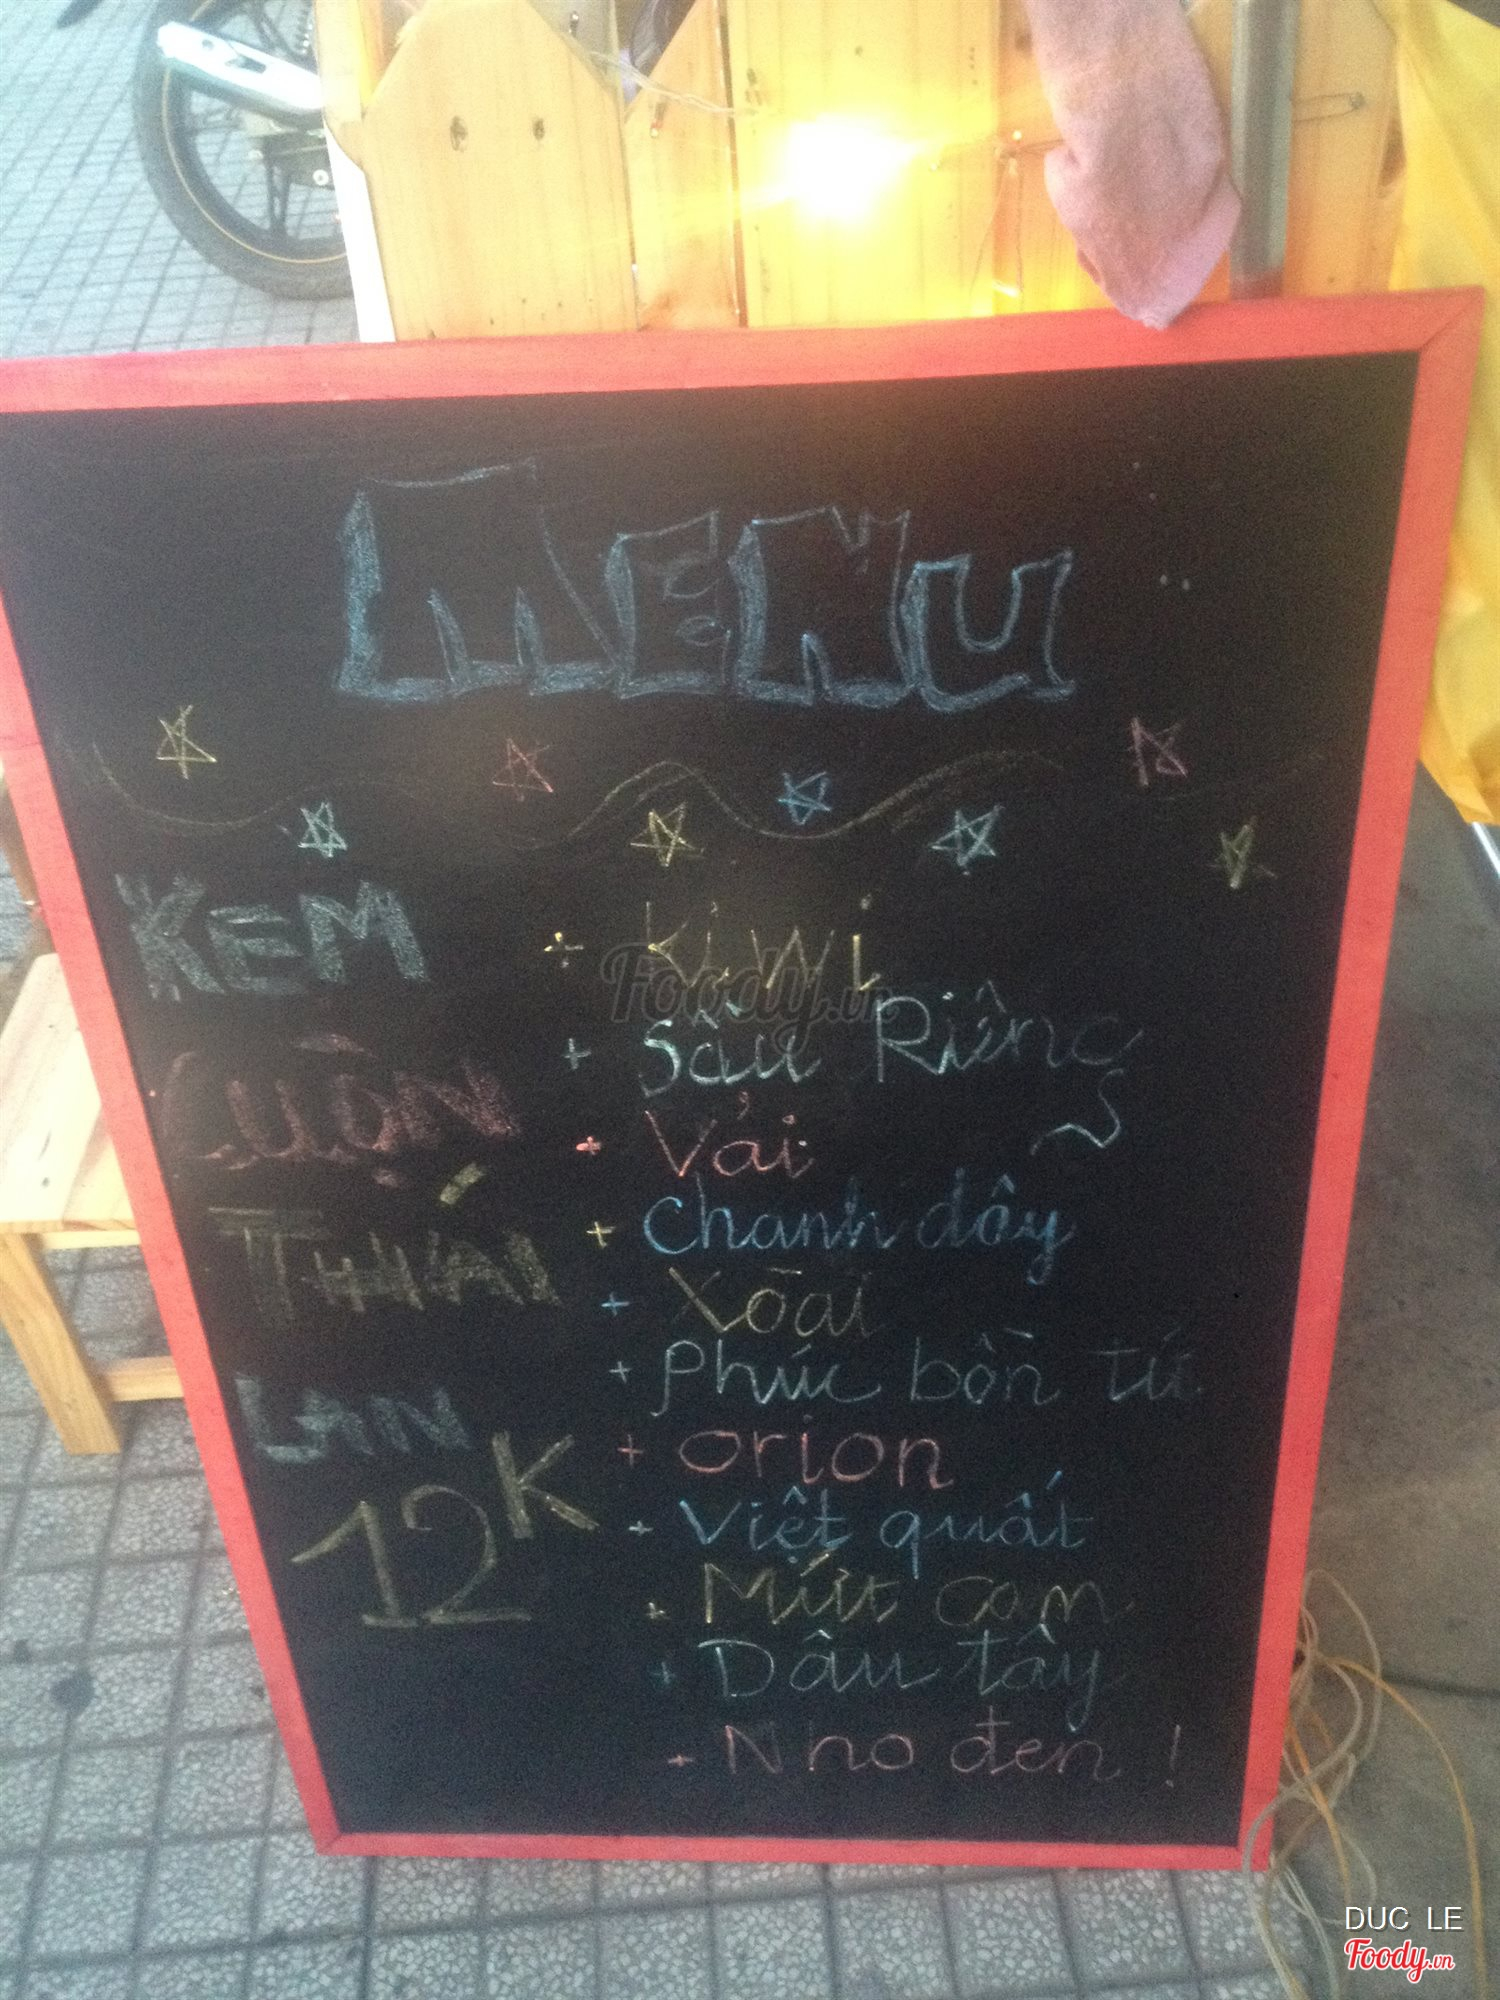 MENU
KEM
CUỘN
THÁI
LAN
12K
+ Kiwi
+ Sầu Riêng
+ Vải
+ Chanh dây
+ Xoài
+ Phúc bồn tử
+ orion
+ Việt quất
+ Mứt cam
+ Dâu tây
+ Nho đen !
Foody.vn
DUC LE
Foody.vn